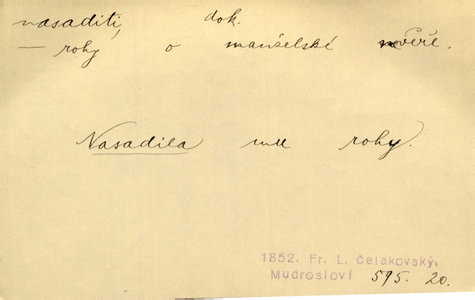 nasaditi, dok.
— rohy o manželské nevěře.
Nasadila mu rohy.
1852. Fr. L. Čelakovský,
Mudrosloví 595. 20.